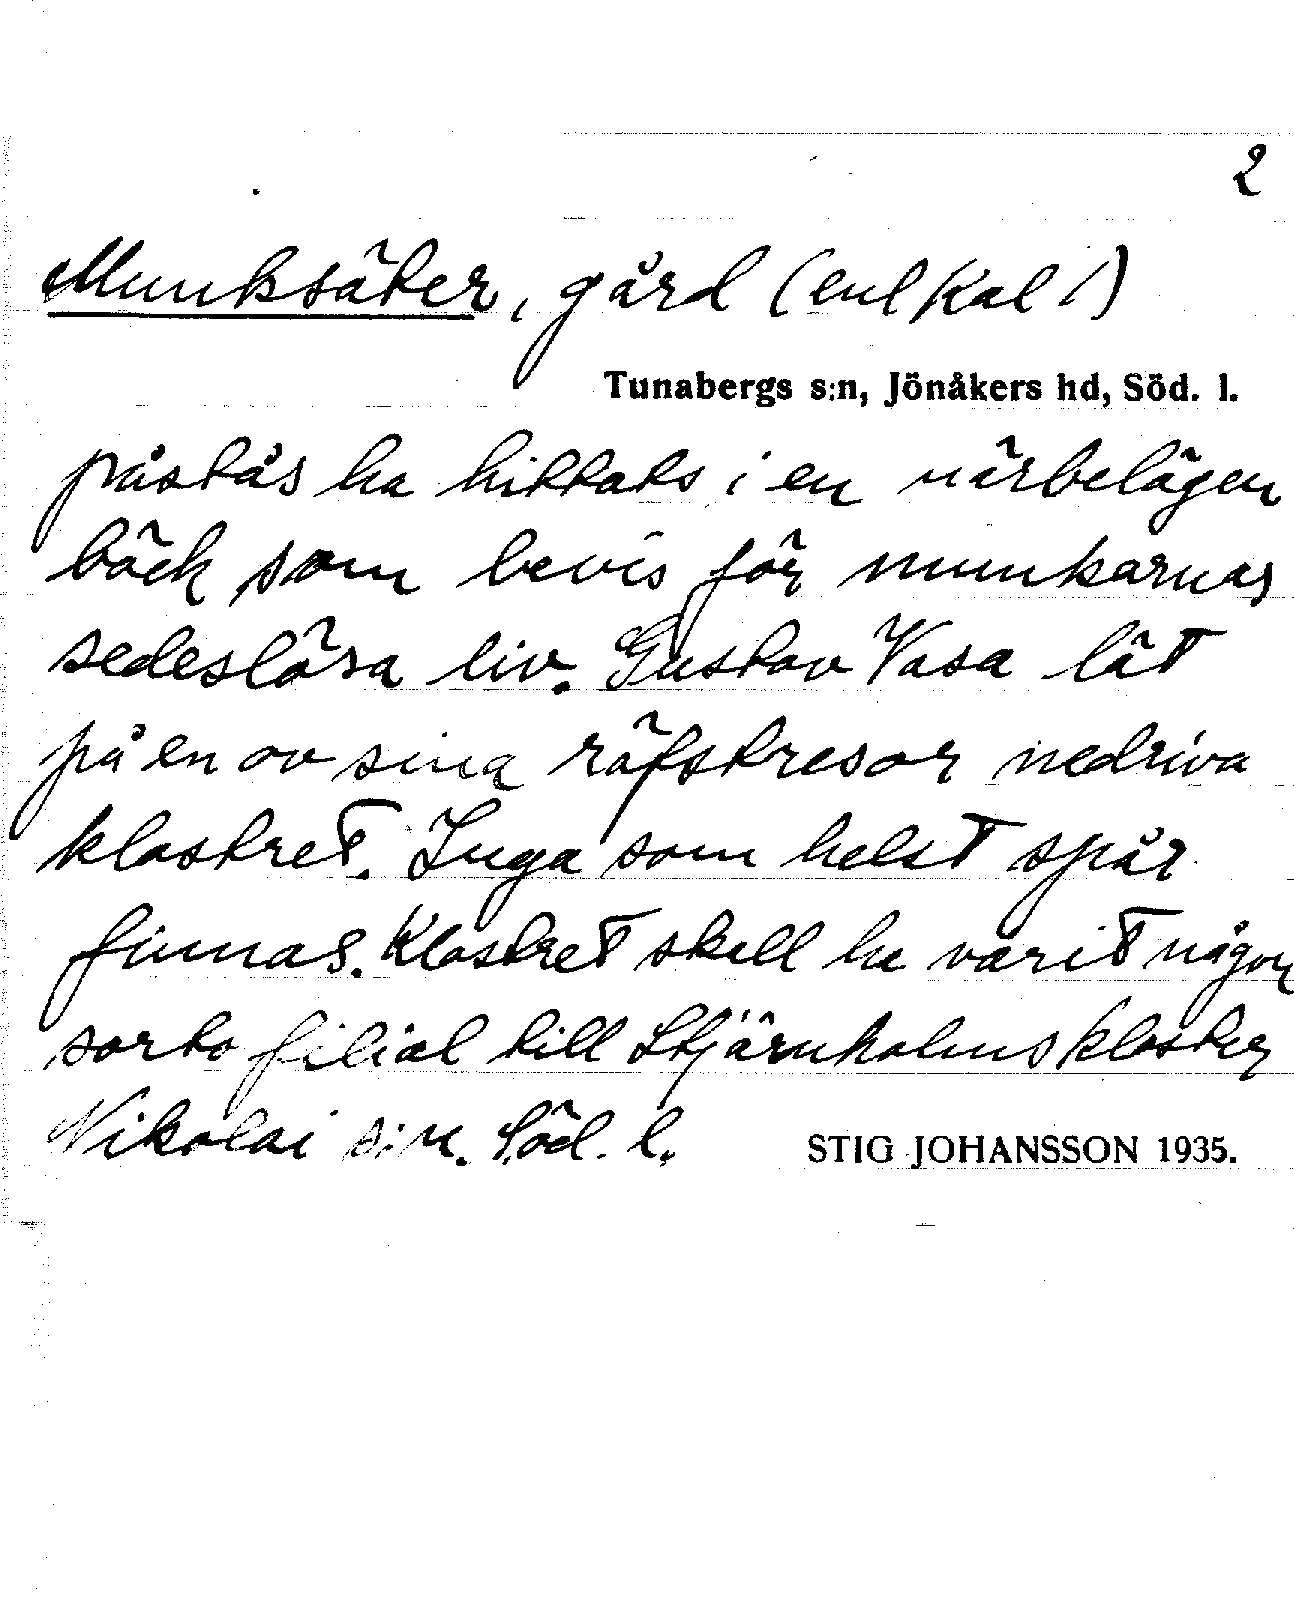 2
Munksäter, gård (enl kal 1)
Tunabergs s:n, Jönåkers hd, Söd. l.
påstås ha hittats i en närbelägen
bäck som bevis för munkarnas
sedeslösa liv. Gustav Vasa lät
på en av sina räfstresor nedriva
klostret. Inga som helst spår
finnas. Klostret skall ha varit någon
sorts filial till Stjärnholms kloster
Nikolai s:n. Söd. l.
STIG JOHANSSON 1935.